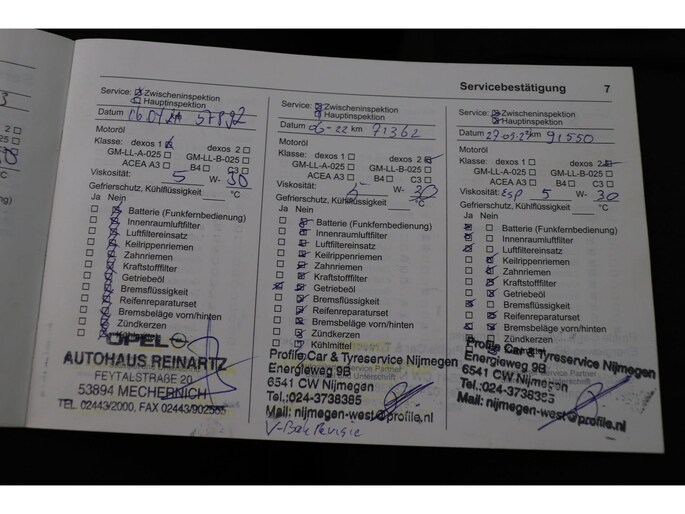 Servicebestätigung 7
Service: Zwischeninspektion
Hauptinspektion
Datum 57892
Motoröl
Klasse: dexos 1 dexos 2
GM-LL-A-025 GM-LL-B-025
ACEA A3 B4 C3
Viskosität: 5 W- 30
Gefrierschutz, Kühlflüssigkeit °C
Ja Nein
Batterie (Funkfernbedienung)
Innenraumluftfilter
Luftfiltereinsatz
Keilrippenriemen
Zahnriemen
Kraftstofffilter
Getriebeöl
Bremsflüssigkeit
Reifenreparaturset
Bremsbeläge vorn/hinten
Zündkerzen
OPEL
AUTOHAUS REINARTZ
FEYTALSTRAßE 20
53894 MECHERNICH
TEL. 02443/2000, FAX 02443/902565
Service: Zwischeninspektion
Hauptinspektion
Datum 06-22 km 71362
Motoröl
Klasse: dexos 1 dexos 2
GM-LL-A-025 GM-LL-B-025
ACEA A3 B4 C3
Viskosität: 5 W- 30
Gefrierschutz, Kühlflüssigkeit °C
Ja Nein
Batterie (Funkfernbedienung)
Innenraumluftfilter
Luftfiltereinsatz
Keilrippenriemen
Zahnriemen
Kraftstofffilter
Getriebeöl
Bremsflüssigkeit
Reifenreparaturset
Bremsbeläge vorn/hinten
Zündkerzen
Kühlmittel
Profile Car & Tyreservice Nijmegen
Energieweg 9B
6541 CW Nijmegen
Tel.:024-3738385
Mail: nijmegen-west@profile.nl
Service: Zwischeninspektion
Hauptinspektion
Datum km 91550
Motoröl
Klasse: dexos 1 dexos 2
GM-LL-A-025 GM-LL-B-025
ACEA A3 B4 C3
Viskosität: ESP 5 W- 30
Gefrierschutz, Kühlflüssigkeit °C
Ja Nein
Batterie (Funkfernbedienung)
Innenraumluftfilter
Luftfiltereinsatz
Keilrippenriemen
Zahnriemen
Kraftstofffilter
Getriebeöl
Bremsflüssigkeit
Reifenreparaturset
Bremsbeläge vorn/hinten
Zündkerzen
Profile Car & Tyreservice Nijmegen
Energieweg 9B
6541 CW Nijmegen
Tel.:024-3738385
Mail: nijmegen-west@profile.nl